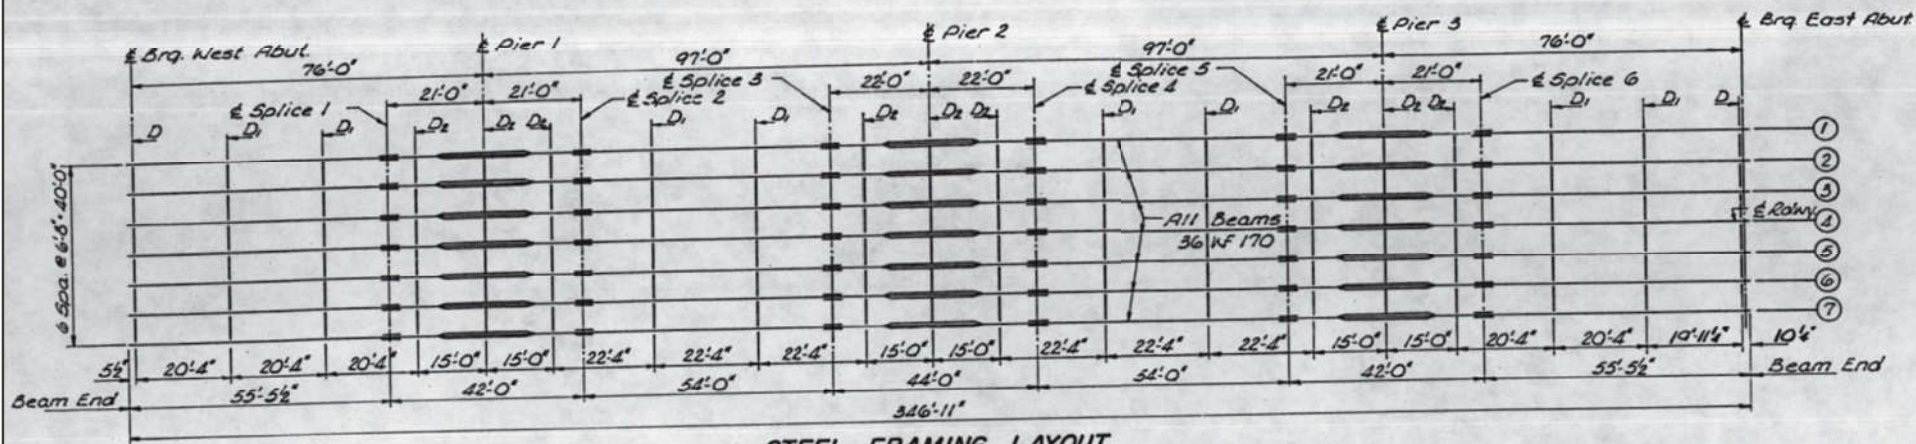 ℄ Brg. West Abut.
℄ Pier 1
℄ Pier 2
℄ Pier 3
℄ Brg. East Abut.
76'-0"
97'-0"
97'-0"
76'-0"
℄ Splice 1
21'-0"
21'-0"
℄ Splice 2
℄ Splice 3
22'-0"
22'-0"
℄ Splice 4
℄ Splice 5
21'-0"
21'-0"
℄ Splice 6
D
D₁
D₁
D₂
D₂
D₂
D₁
D₁
D₂
D₂
D₂
D₁
D₁
D₂
D₂
D₂
D₁
D₁
D
1
2
3
4
5
6
7
℄ Rdwy.
All Beams
36 WF 170
6 Spa. @ 6'-8" = 40'-0"
5½"
20'-4"
20'-4"
20'-4"
15'-0"
15'-0"
22'-4"
22'-4"
22'-4"
15'-0"
15'-0"
22'-4"
22'-4"
22'-4"
15'-0"
15'-0"
20'-4"
20'-4"
19'-11¼"
10¼"
Beam End
55'-5½"
42'-0"
54'-0"
44'-0"
54'-0"
42'-0"
55'-5½"
Beam End
346'-11"
STEEL FRAMING LAYOUT